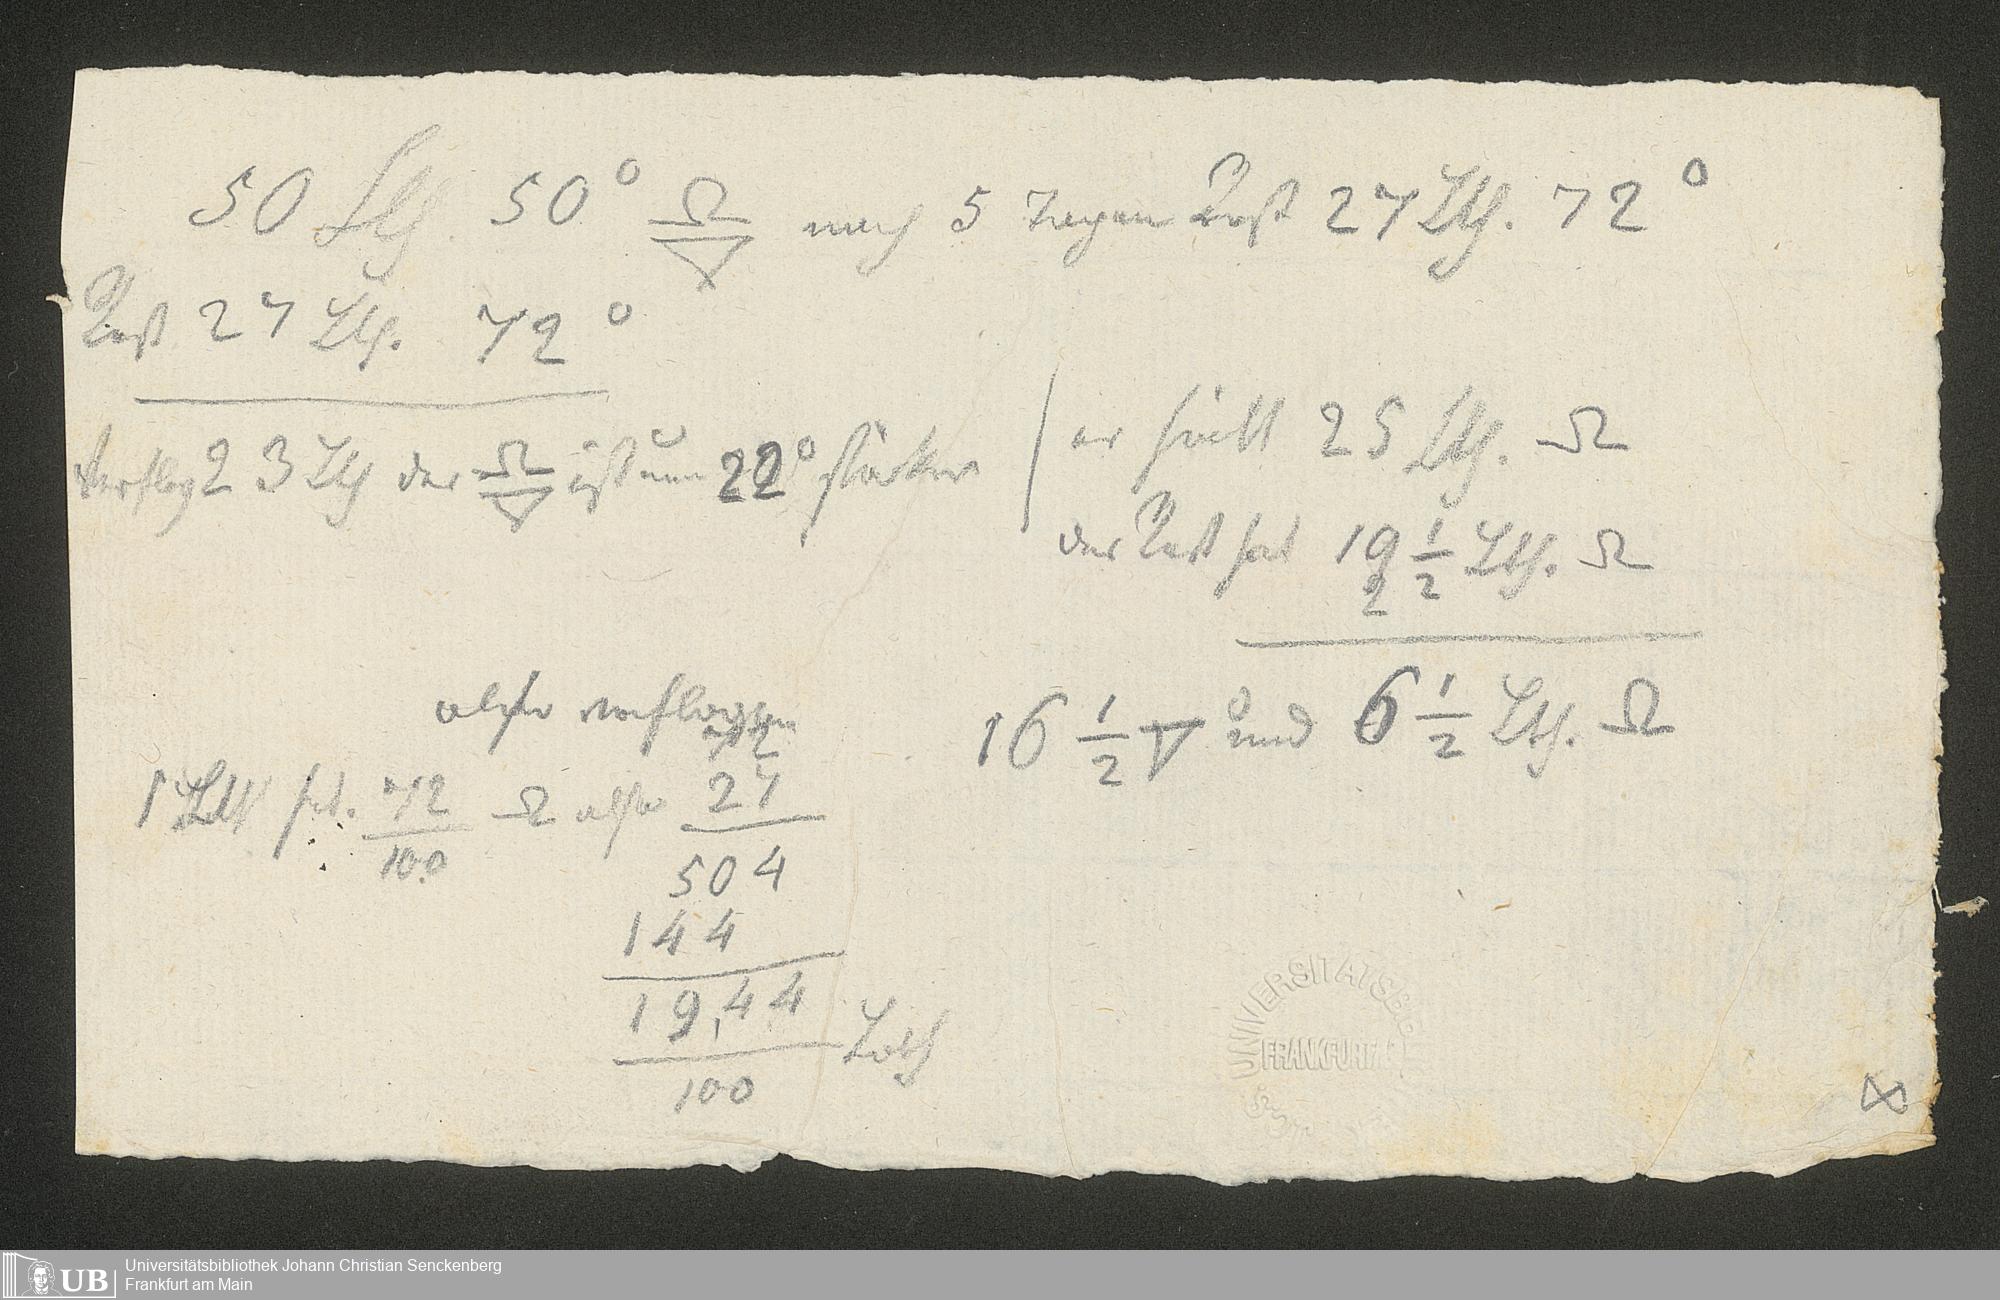 50 Lth. 50° Ω▽ nach 5 Tagen Rest 27 Lth. 72°
Rest 27 Lth. 72°
verflog 23 Lth der Ω▽ ist um 22° stärker
er hielt 25 Lth. Ω
der Rest hat 19 1/2 Lth. Ω
2
also verflogen
16 1/2 ▽ und 6 1/2 Lth. Ω
72
1 Lth hat. 72/100 Ω also 27
504
144
19,44
100
Loth
UNIVERSITÄTSB
FRANKFURT
UB Universitätsbibliothek Johann Christian Senckenberg
Frankfurt am Main